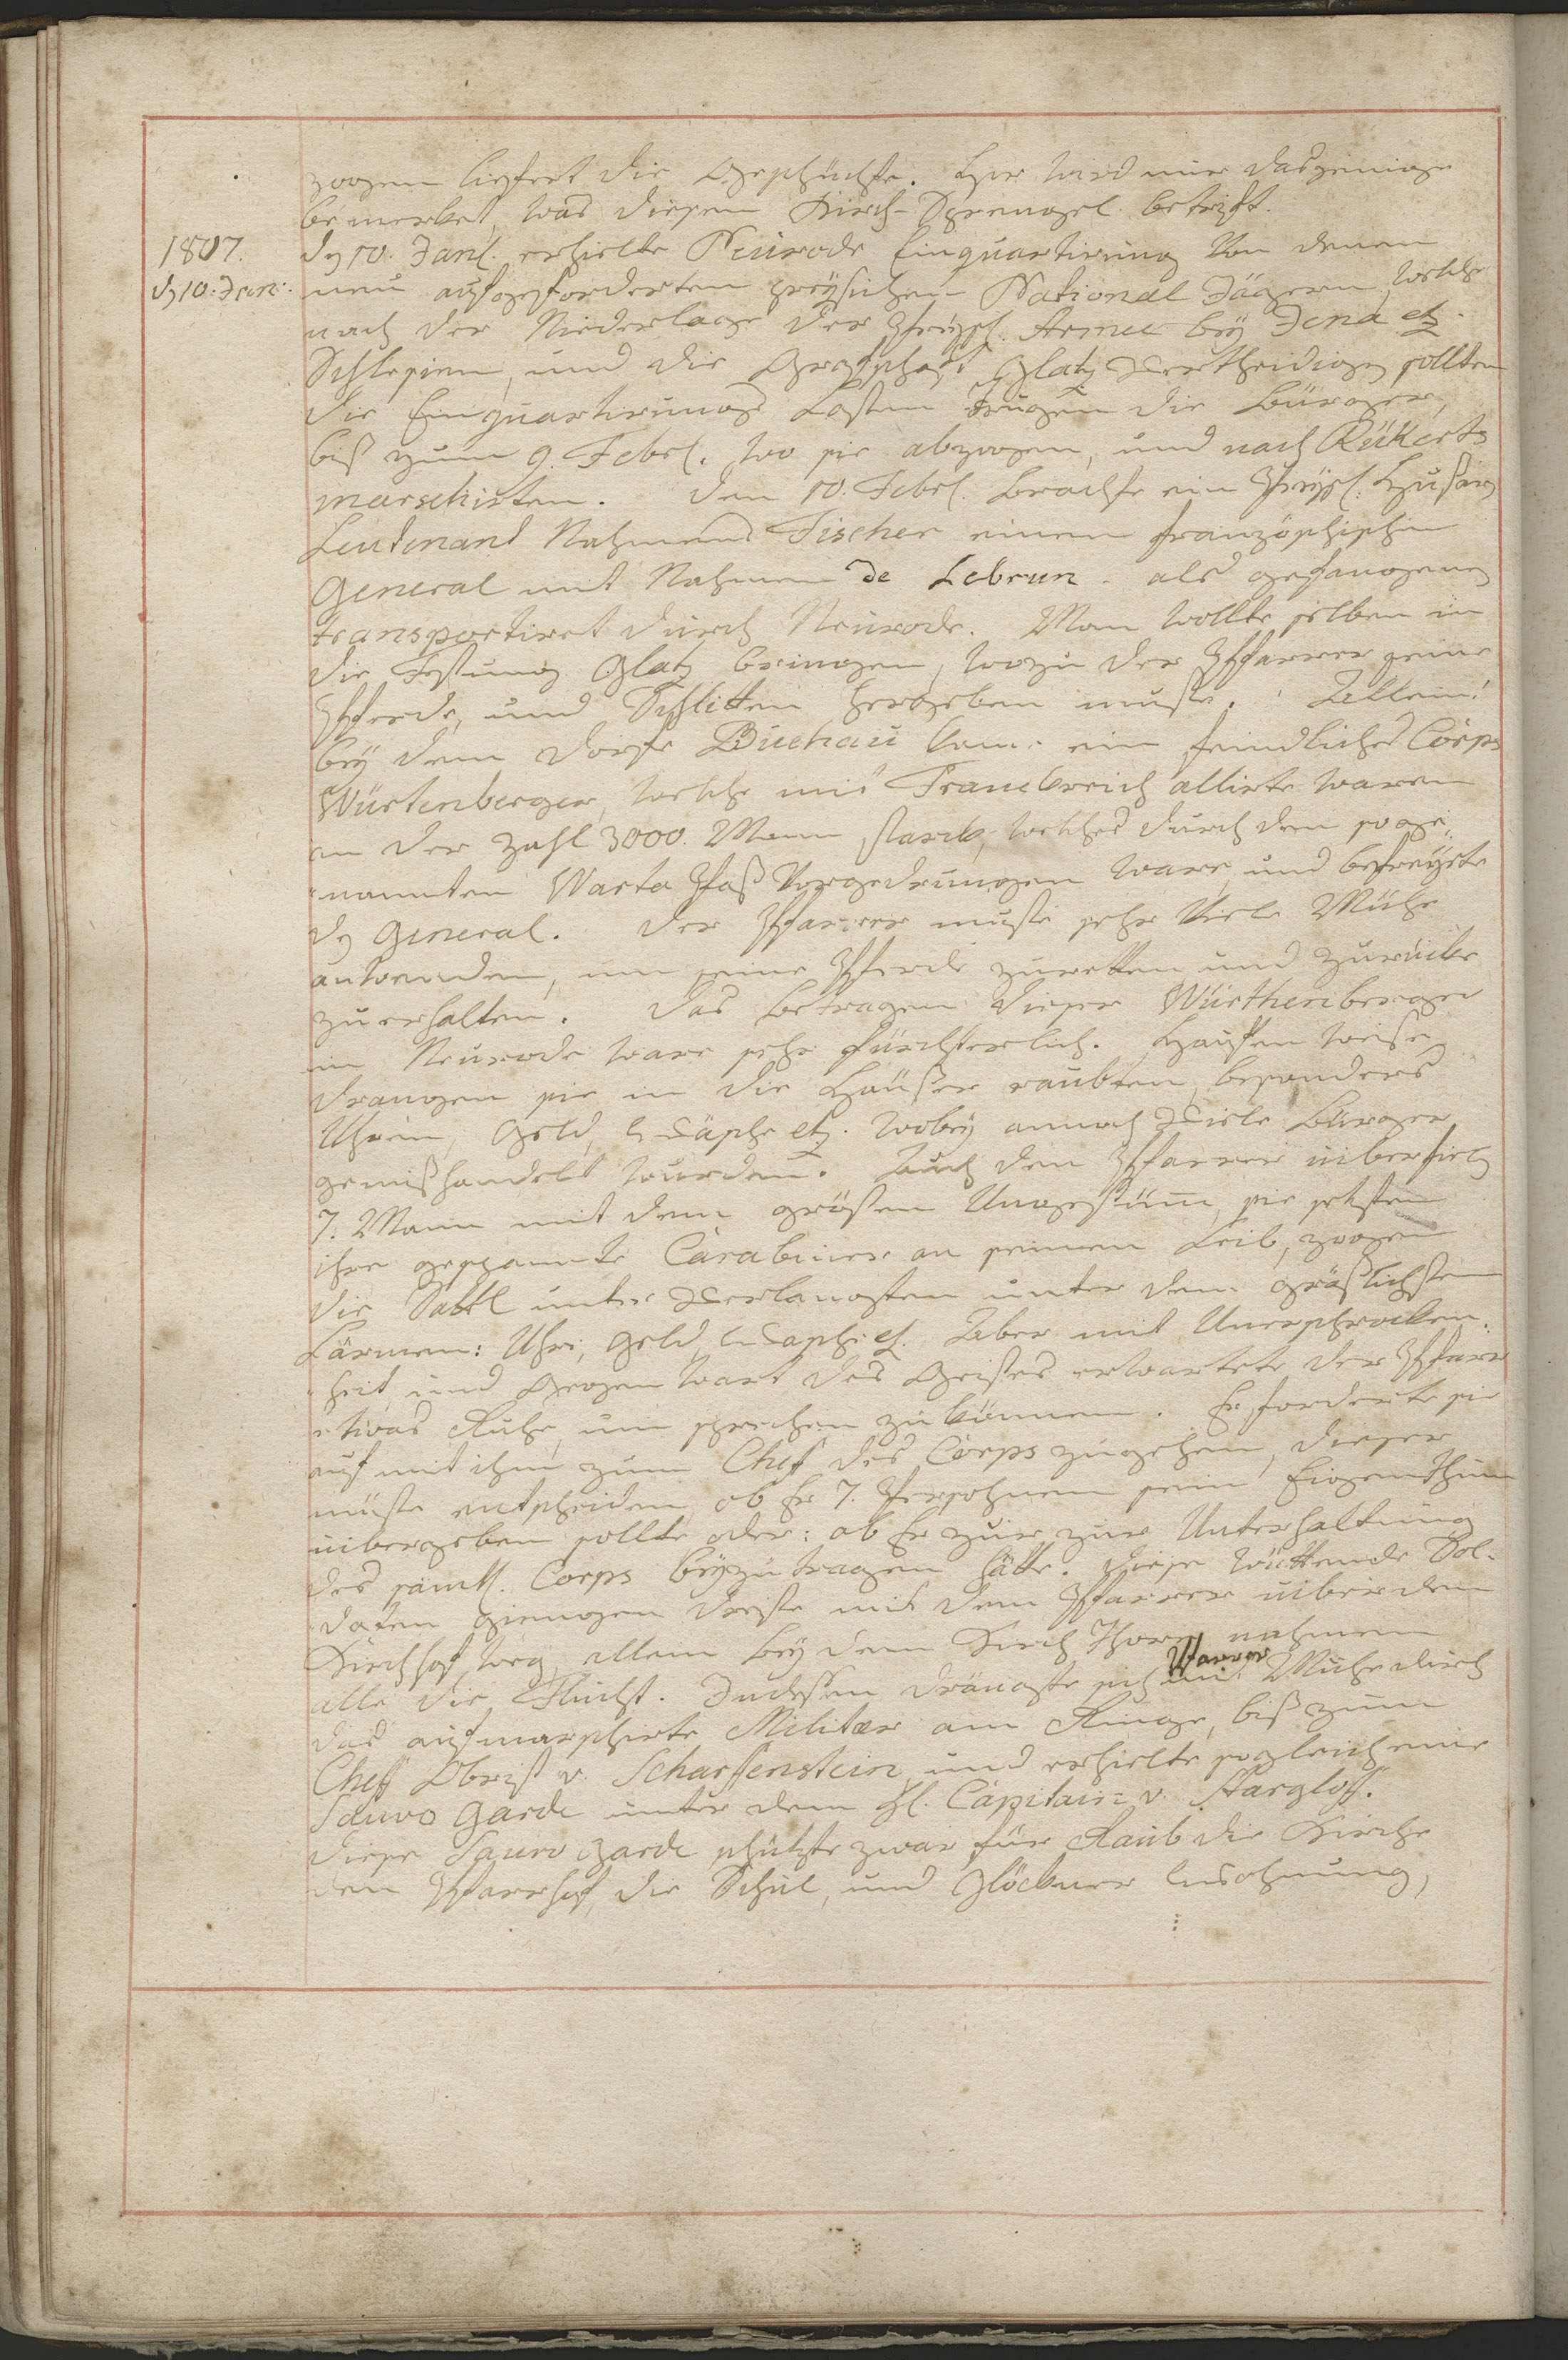 zogen liefert die Geschüchte. Hier wird nur dasjenige
bemerket, was diesen Kirch-Sprengel betrift.
1807.
dn 10. Jan:
dn 10. Janl. erhielte Neurode Einquartirung von denen
neu aufgeforderten preÿsichen National Jägern, welche
nach der Niederlage der Preÿsl. Armee beÿ Jena etz.
Schlesien, und die Grafschaft Glatz vertheidigen sollten
die Einquartirungs Lasten trugen die Bürger,
biß zum 9. Febrl. wo sie abzogen, und nach Rükerts
marschirten. Den 10. Febrl. brachte ein Preÿsl. Hußarn
Leutenant Nahmens Fischer einen französischen
General mit Nahmen de Lebrun. als gefangenen
transportiret durch Neurode. Man wollte selben in
die Festung Glatz bringen, wozu der Pfarrer seine
Pferde, und Schlitten hergeben muste. Allein!
beÿ dem Dorfe Buchau kam ein feindliches Corps
Würtenberger, welche mit Franckreich allirte waren
an der Zahl 3000. Mann starck, welches durch den soge„
„nannten Warta Paß vorgedrungen ware, und befreÿete
dn General. Der Pfarrer muste sehr viele Mühe
anwenden, um seine Pferde zuretten und zurücke
zu erhalten. Das Betragen dieser Würthenberger
in Neurode ware sehr fürchterlich. Hauffen weise
drangen sie in die Häußer raubten, besonders
Uhren, Geld, Wäsche etz. wobeÿ annoch viele Bürger
gemißhandelt wurden. Auch den Pfarrer überfieln
7. Mann mit dem grösten Ungestüm, sie setzten
ihre gespannte Carabiner an seinen Leib, zogen
die Sabel unter verlangten unter dem gräßlichsten
Lärmen: Uhr, Geld, Wasche etz. Aber mit Unerschrocken„
„heit, und Gegenwart des Geistes erwartete der Pfarr
etwas Ruhe, um sprechen zu können. Er forderte sie
auf mit ihm zum Chef des Corps zugehen, dieser
müste entscheiden, ob Er 7. Persohnen sein Eigenthum
übergeben sollte oder: ob Er zur Unterhaltung
des sämtl. Corps beÿzutragen hätte. Diese wüttende Sol„
„daten giengen dreiste mit dem Pfarrer über den
Kirchhof weg, allein beÿ dem Kirch Thore nahmen
alle die Flucht. Indessen drängte sich Pfarrer mit Mühe durch
das aufmarschirte Militær am Ringe, biß zum
Cheff Obrist v. Scharffenstein und erhielte sogleich eine
Sauvo Garde unter dem Hl. Capitain v. Hargloff.
diese Sauvo garde schützte zwar für Raub die Kirche
den Pfarrhof, die Schul, und Glöckner Wohnung,